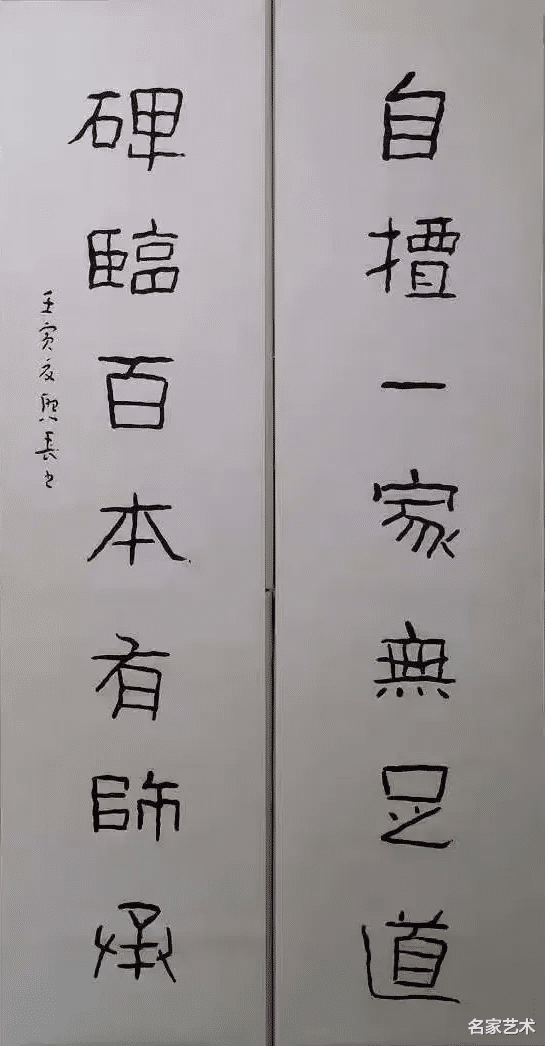 自擅一家無足道
碑臨百本有師承
壬寅夏熙長书
名家艺术